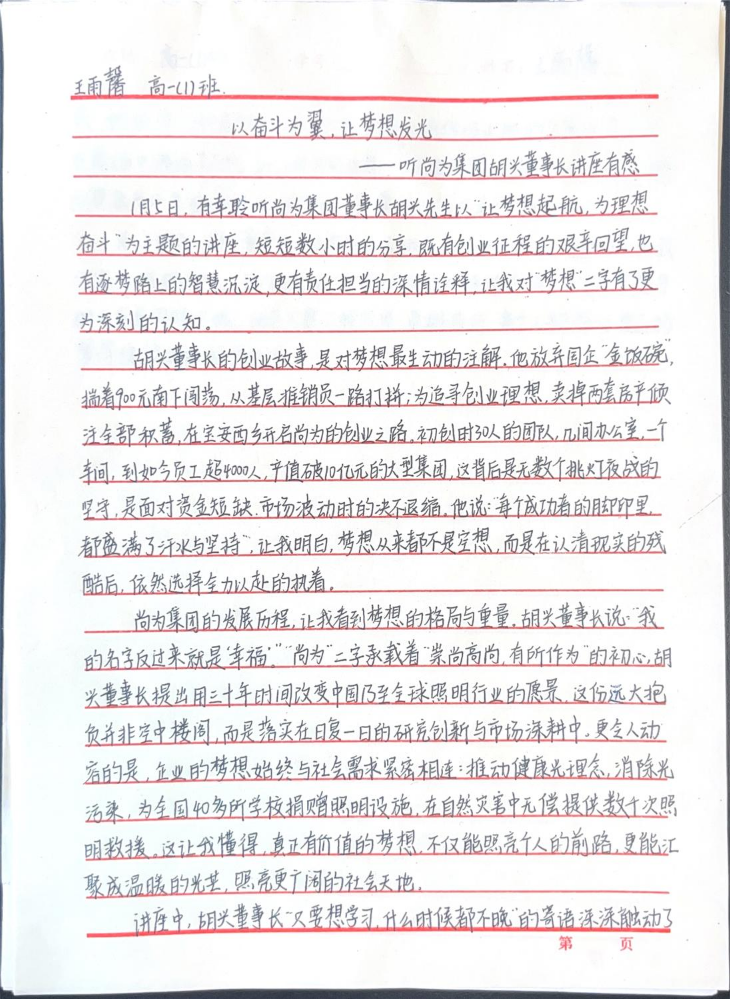 王雨馨 高一(1)班
以奋斗为翼，让梦想发光
——听尚为集团胡兴董事长讲座有感
1月5日，有幸聆听尚为集团董事长胡兴先生以“让梦想起航，为理想
奋斗”为主题的讲座，短短数小时的分享，既有创业征程的艰辛回望，也
有逐梦路上的智慧沉淀，更有责任担当的深情诠释，让我对“梦想”二字有了更
为深刻的认知。
胡兴董事长的创业故事，是对梦想最生动的注解。他放弃国企“金饭碗”，
揣着900元南下闯荡，从基层推销员一路打拼；为追寻创业理想，卖掉两套房产倾
注全部积蓄，在宝安西乡开启尚为的创业之路。初创时30人的团队，几间办公室，一个
车间，到如今员工超4000人，产值破10亿元的大型集团，这背后是无数个挑灯夜战的
坚守，是面对资金短缺、市场波动时的决不退缩。他说：“每个成功者的脚印里，
都盛满了汗水与坚持”，让我明白，梦想从来都不是空想，而是在认清现实的残
酷后，依然选择全力以赴的执着。
尚为集团的发展历程，让我看到梦想的格局与重量。胡兴董事长说：“我
的名字反过来就是‘幸福’。”“尚为”二字承载着“崇尚高尚，有所作为”的初心，胡
兴董事长提出用三十年时间改变中国乃至全球照明行业的愿景，这份远大抱
负并非空中楼阁，而是落实在日复一日的研究创新与市场深耕中。更令人动
容的是，企业的梦想始终与社会需求紧密相连：推动健康光理念，消除光
污染，为全国40多所学校捐赠照明设施，在自然灾害中无偿提供数十次照
明救援。这让我懂得，真正有价值的梦想，不仅能照亮个人的前路，更能汇
聚成温暖的光芒，照亮更广阔的社会天地。
讲座中，胡兴董事长“只要想学习，什么时候都不晚”的寄语深深触动了
第 页